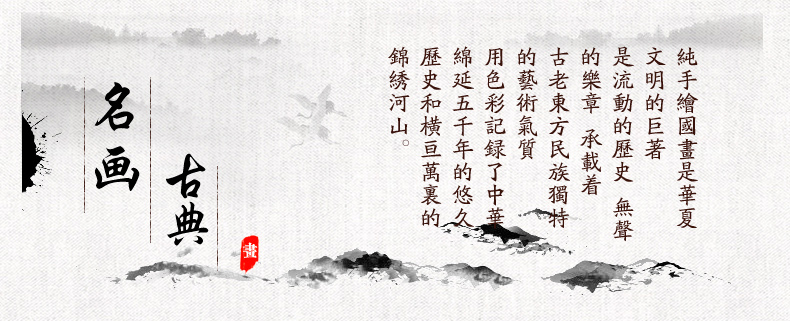 純手繪國畫是華夏
文明的巨著
是流動的歷史 無聲
的樂章 承載着
古老東方民族獨特
的藝術氣質
用色彩記録了中華
綿延五千年的悠久
歷史和橫亘萬裏的
錦綉河山。
名画
古典
畫